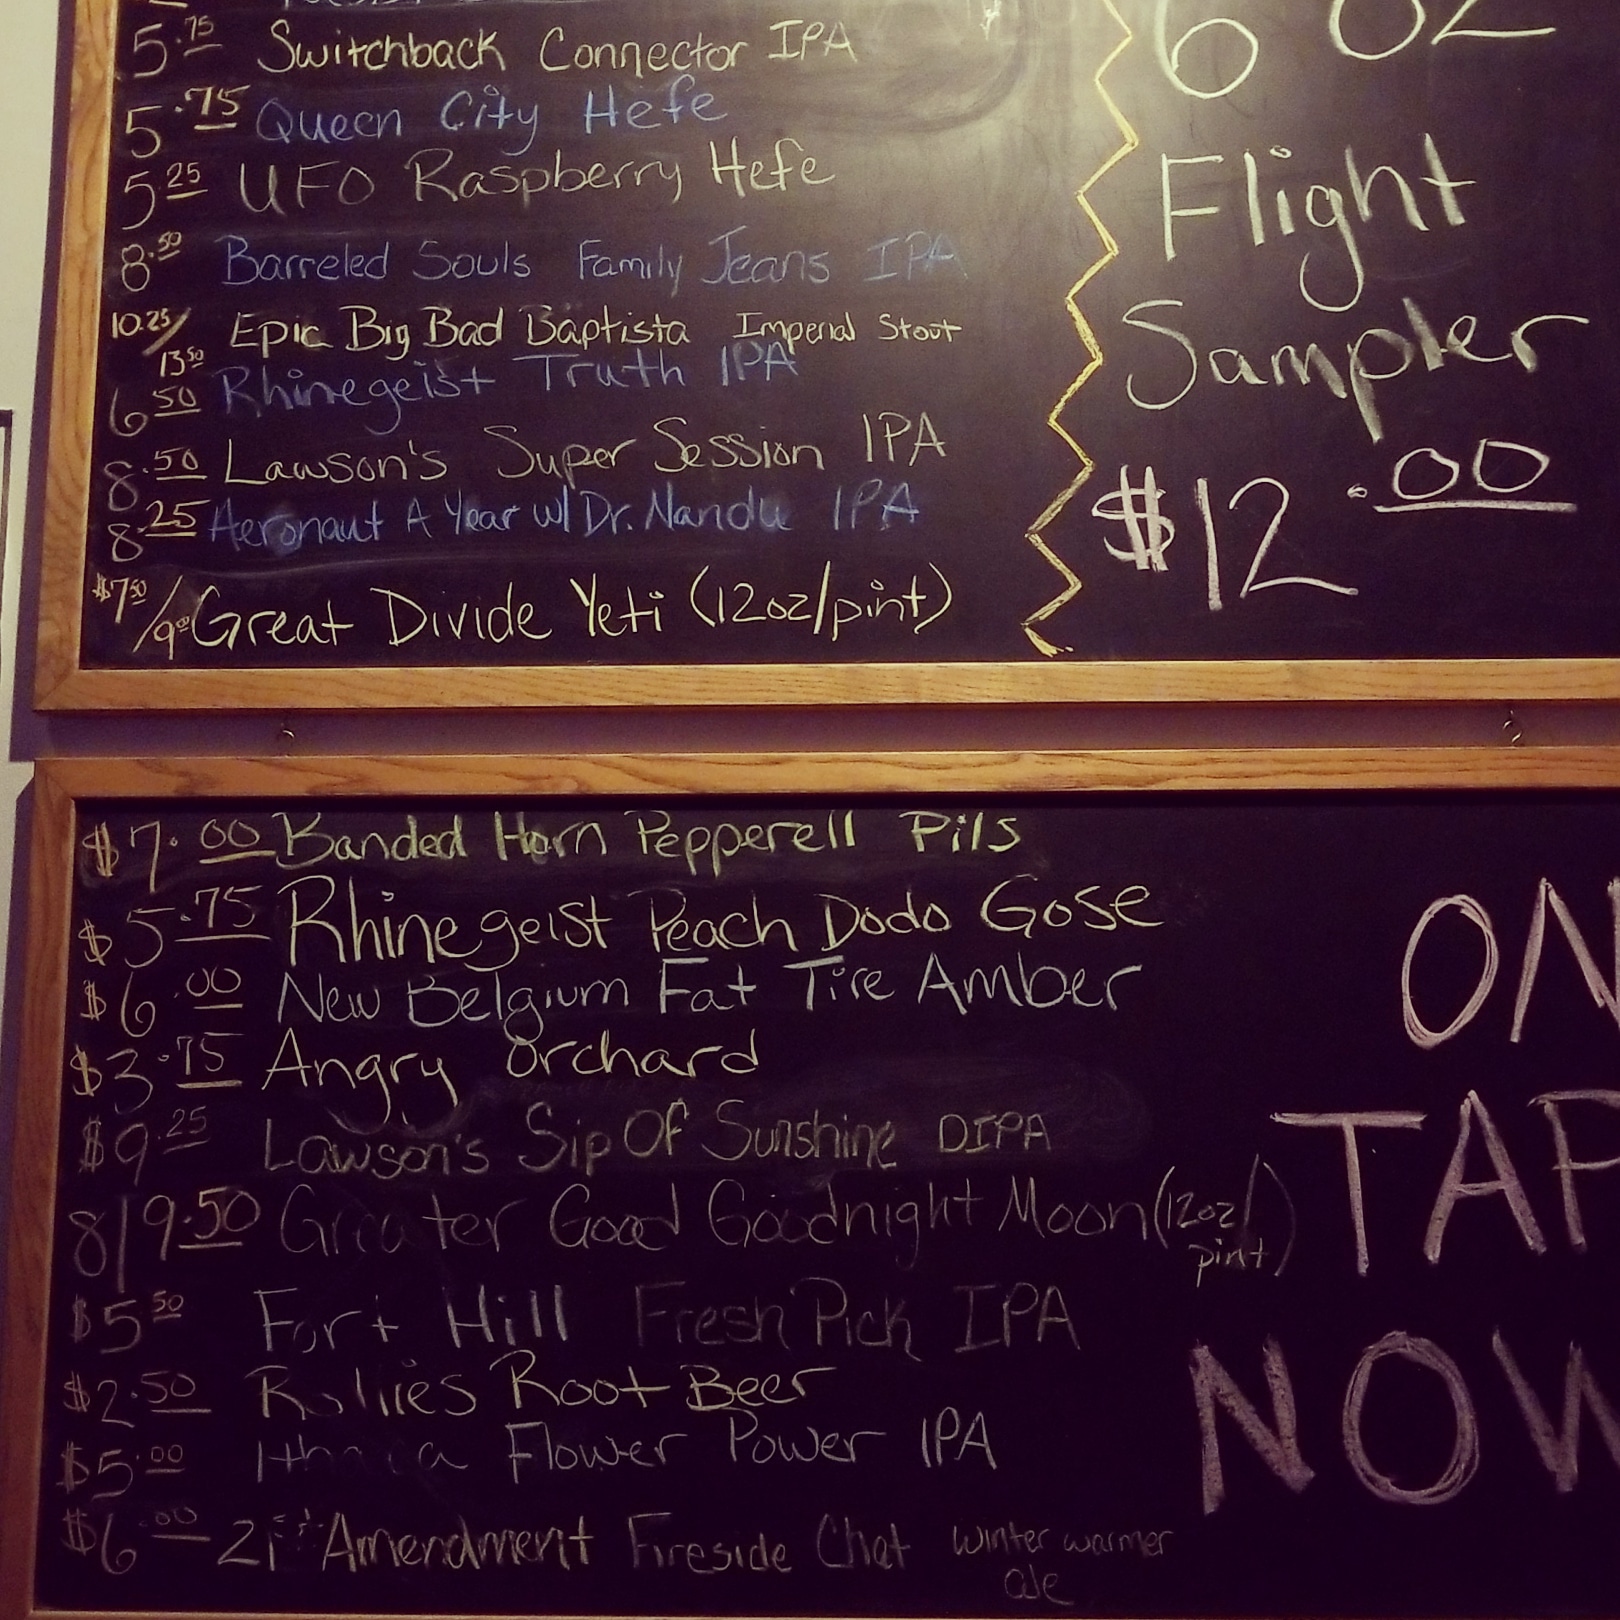 5.75 Switchback Connector IPA
5.75 Queen City Hefe
5.25 UFO Raspberry Hefe
8.50 Barreled Souls Family Jeans IPA
10.25/13.50 Epic Big Bad Baptista Imperial Stout
6.50 Rhinegeist Truth IPA
8.50 Lawson's Super Session IPA
8.25 Aeronaut A Year w/ Dr. Nandu IPA
$7.50/9.00 Great Divide Yeti (12oz/pint)
6 oz
Flight
Sampler
$12.00
$7.00 Banded Horn Pepperell Pils
$5.75 Rhinegeist Peach Dodo Gose
$6.00 New Belgium Fat Tire Amber
$3.75 Angry Orchard
$9.25 Lawson's Sip Of Sunshine DIPA
8/9.50 Greater Good Goodnight Moon (12oz/
pint)
$5.50 Fort Hill Fresh Pick IPA
$2.50 Root Beer
$5.00 Ithaca Flower Power IPA
$6.00 21st Amendment Fireside Chat winter warmer
ale
ON
TAP
NOW